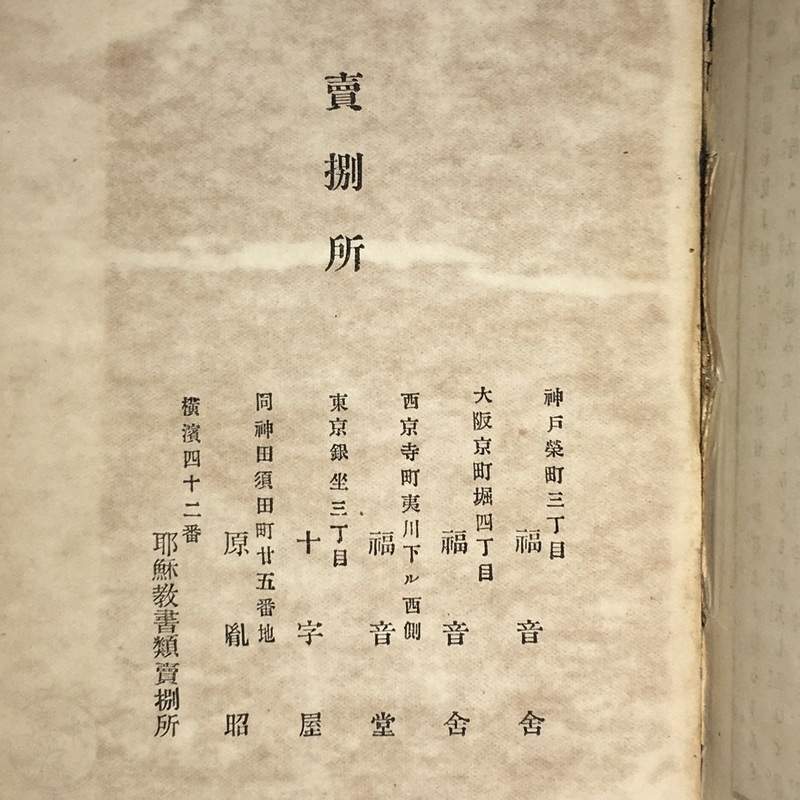 賣捌所
神戸榮町三丁目
福音舍
大阪京町堀四丁目
福音舍
西京寺町夷川下ル西側
福音堂
東京銀坐三丁目
十字屋
同神田須田町廿五番地
原胤昭
橫濱四十二番
耶穌教書類賣捌所